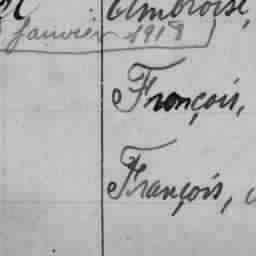 Ambroise,
Janvier 1918
François,
François,